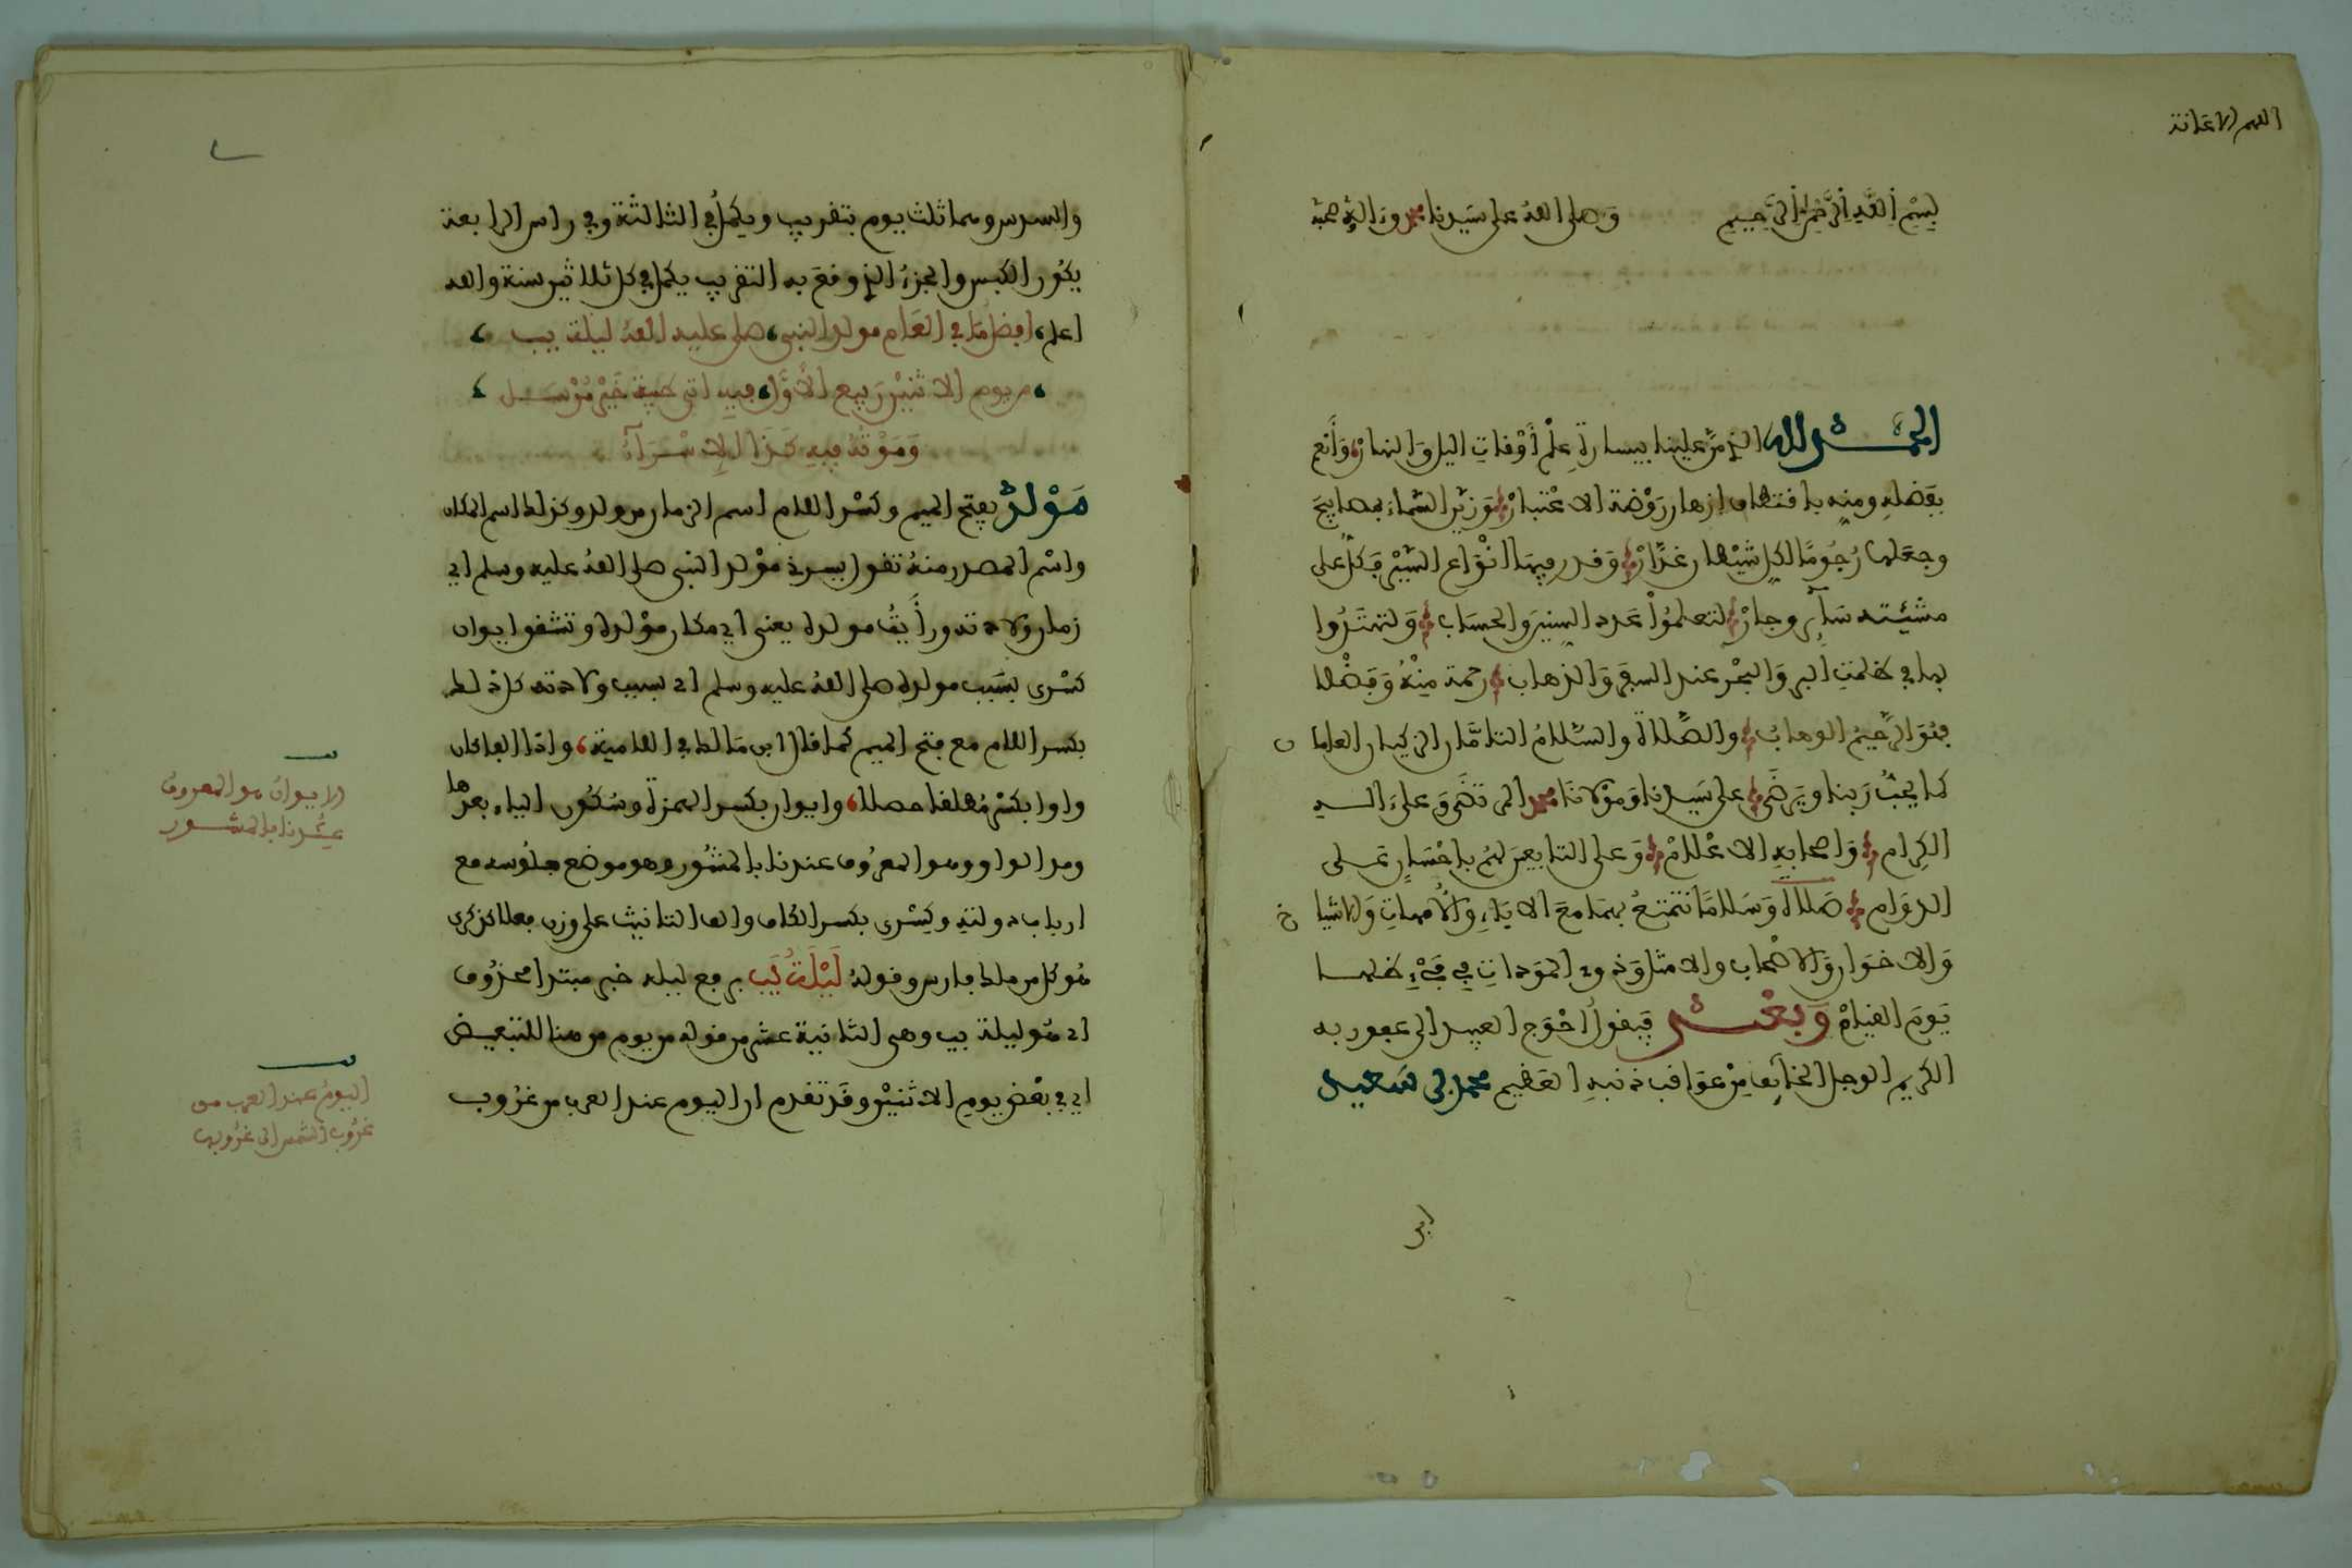 اللهم الاعانة
بِسْمِ اللَّهِ الرَّحْمَٰنِ الرَّحِيمِ وَصلى اللهُ على سَيدنا محمد وَءالِهِ وصحبه
الحمد لله الذي مَنَّ علينا بيسارةِ عِلْمِ أَوْقاتِ اليل وَالنهارْ وَأَنْعم
بفضلِهِ ومنِهِ باقتطاف ازهار رَوْضة الاعْتبارْ وَزيَّن السَّماءَ بمصابيحَ
وجعَلها رُجُومًا لكل شيْطان غدَّارْ وَقدر فيها انْوَاع السَّيْر فكلٌ على
مشئيته سَائر وجارْ لتعلمُواْ عَدد السِنينَ والحسَاب وَلتهتَدُوا
بها في ظلمتِ البر وَالبحْر عند السفر وَالذهاب رحمة مِنْهُ وَفضْلا
فهُوَ الرَّحيمُ الوهابُ والصَّلاة والسَّلامُ التامَّان الزكيان العامان
كما يحبُّ رَبنا وَيرضَى على سَيدنا وَمَوْلانَا محمد المرتضَى وَعلىَ الـه
الكِرام وَاصحابِهِ الاعْلامْ وَعلى التابعين لهُم باحْسَان عَـلى
الدوَام صَلاة وَسَلامَا نتمتعُ بهمَا معَ الابَاءِ وَالأمهاتِ وَالاشياخ
وَالاخوَان وَالاصْحاب والامثال وَذوي المَوَدات في فَيْءِ ظلهما
يَومَ القيامْ وَبعْـد فيقولُ احْوَج العبيد الى عفور به
الكريم الوجل الخائِف مِنْ عوَاقب ذنبهِ العَظيم محمد بن سَعيد
ابن
والسدس وهما ثلث يوم بتقريب ويكملُ في الثالثة وفي راس الرابعة
يكون الكبس والجزءُ الذي وقعَ به التقريب يكمل في كل ثلاثين سنة والله
اعلم افضل مَا في العَام مولد النبي صلى عليه اللهُ ليلة يب
من يوم الاثنين رَبيع الأوَّل فيهِ اتى طيبة خَيْرُ مُرْسَـل
وَمَوْتهُ فيهِ كَذا الاسْـرَاءُ
مَوْلدُ بفتح الميم وكسْر اللام اسم الزمان من ولد وكذلك اسم المكان
واسْم المصدر منهُ تقول يسرني موْلد النبي صلى اللهُ عليه وسلم اي
زمان ولادته وزرْ أَيضًا مولده يعني اي مكان موْلده وتشقق ايوان
كسْرى بسَبب مولده صلى اللهُ عليه وسلم اي بسبب ولادته كل ذلك
بكسر اللام مع فتح الميم كما قال ابن مَالك في اللامية واذا الفا كان
واوا بكسْر مُطلقا حصلا وايوان بكسر الهمزة وسُكون الياء بعدها
ومد الواو وهو المعرُوف عندنا بالمشُور وهو موضع جلُوسه مع
ارباب دولتهِ وكِسْرى بكسر الكاف والف التانيث على وزن فعلا كذكرى
هُو كل من ملك فارس وقولهُ لَيْلَةُ يَب برفع ليله خبر مبتدا محذُوف
اي هُو ليلة يب وهي الثانية عشر من قوله من يوم من هنا للتبعيض
اي في بعْض يومِ الاثنيْن وقَد تقدم ان اليوم عند العرب من غرُوب
الايوان هو المعروف
عِنْدنا بالمشـور
اليومُ عند العرب من
غرُوب الشمس الى غرُوبها